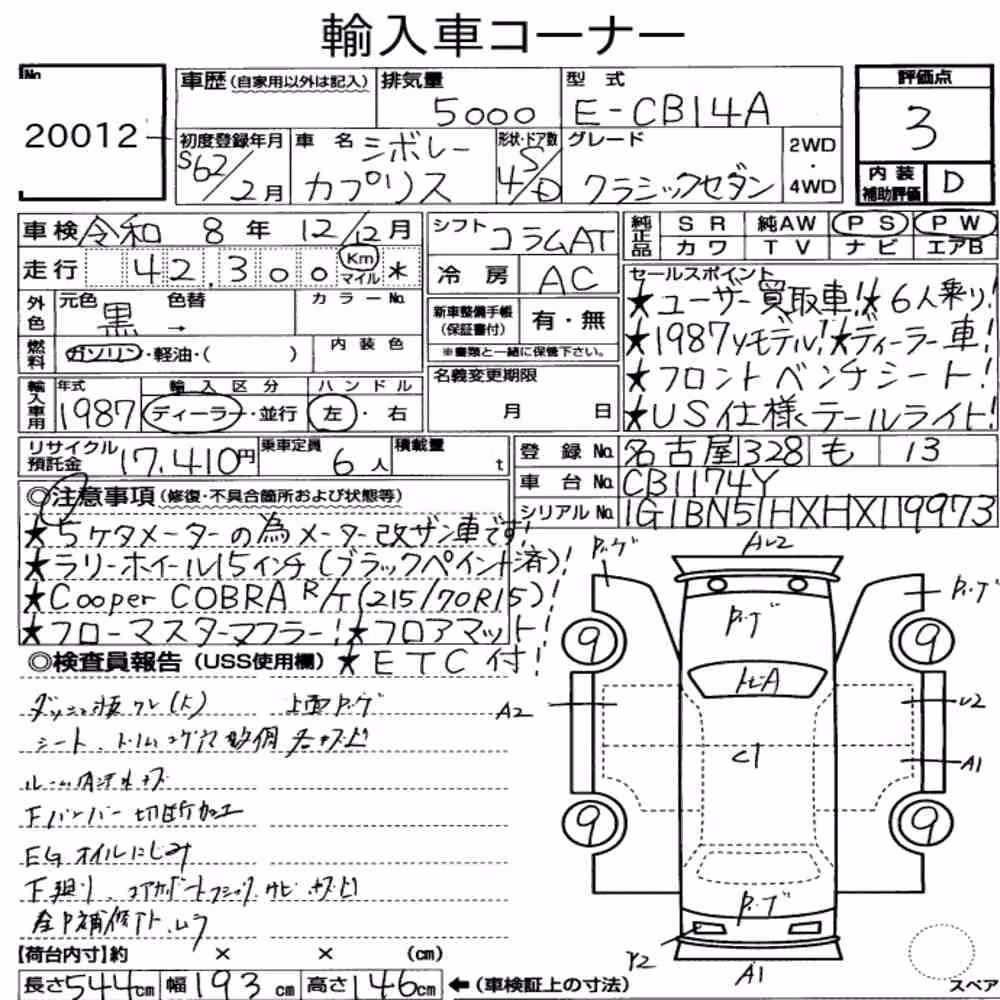 輸入車コーナー
No.
20012
車歴(自家用以外は記入) 排気量 5000 型式 E-CB14A
初度登録年月 S62/2月 車名 シボレー カプリス 形状・ドア数 S/4D グレード クラシックセダン 2WD・4WD
評価点 3
内装補助評価 D
車検 令和 8年 12/12月
走行 42,300 Km マイル ※
外色 元色 黒 → 色替 カラーNo.
燃料 ガソリン・軽油・( ) 内装色
輸入車用 年式 1987 輸入区分 ディーラー・並行 ハンドル 左・右
リサイクル預託金 17,410円 乗車定員 6人 積載量 t
シフト コラムAT
冷房 AC
新車整備手帳(保証書付) 有・無
※書類と一緒に保管下さい。
名義変更期限
月 日
純正品 SR 純AW PS PW
カワ TV ナビ エアB
セールスポイント
★ユーザー買取車!★6人乗り!
★1987yモデル!★ディーラー車!
★フロントベンチシート!
★US仕様テールライト!
登録No. 名古屋 328 も 13
車台No. CB1174Y
シリアルNo. 1G1BN51HXHX119973
◎注意事項(修復・不具合箇所および状態等)
★5ケタメーターの為メーター改ザン車です!
★ラリーホイール15インチ(ブラックペイント済)!
★Cooper COBRA R/T(215/70R15)!
★フローマスターマフラー!★フロアマット!
◎検査員報告(USS使用欄)★ETC付!
上面
シート、
Fバンパー切断加工
EGオイルにじみ
下廻り、
AU2
A2
U2
C1
A1
9
9
9
9
Y2
A1
【荷台内寸】約 × × (cm)
長さ544cm 幅193cm 高さ146cm ←(車検証上の寸法)
スペア